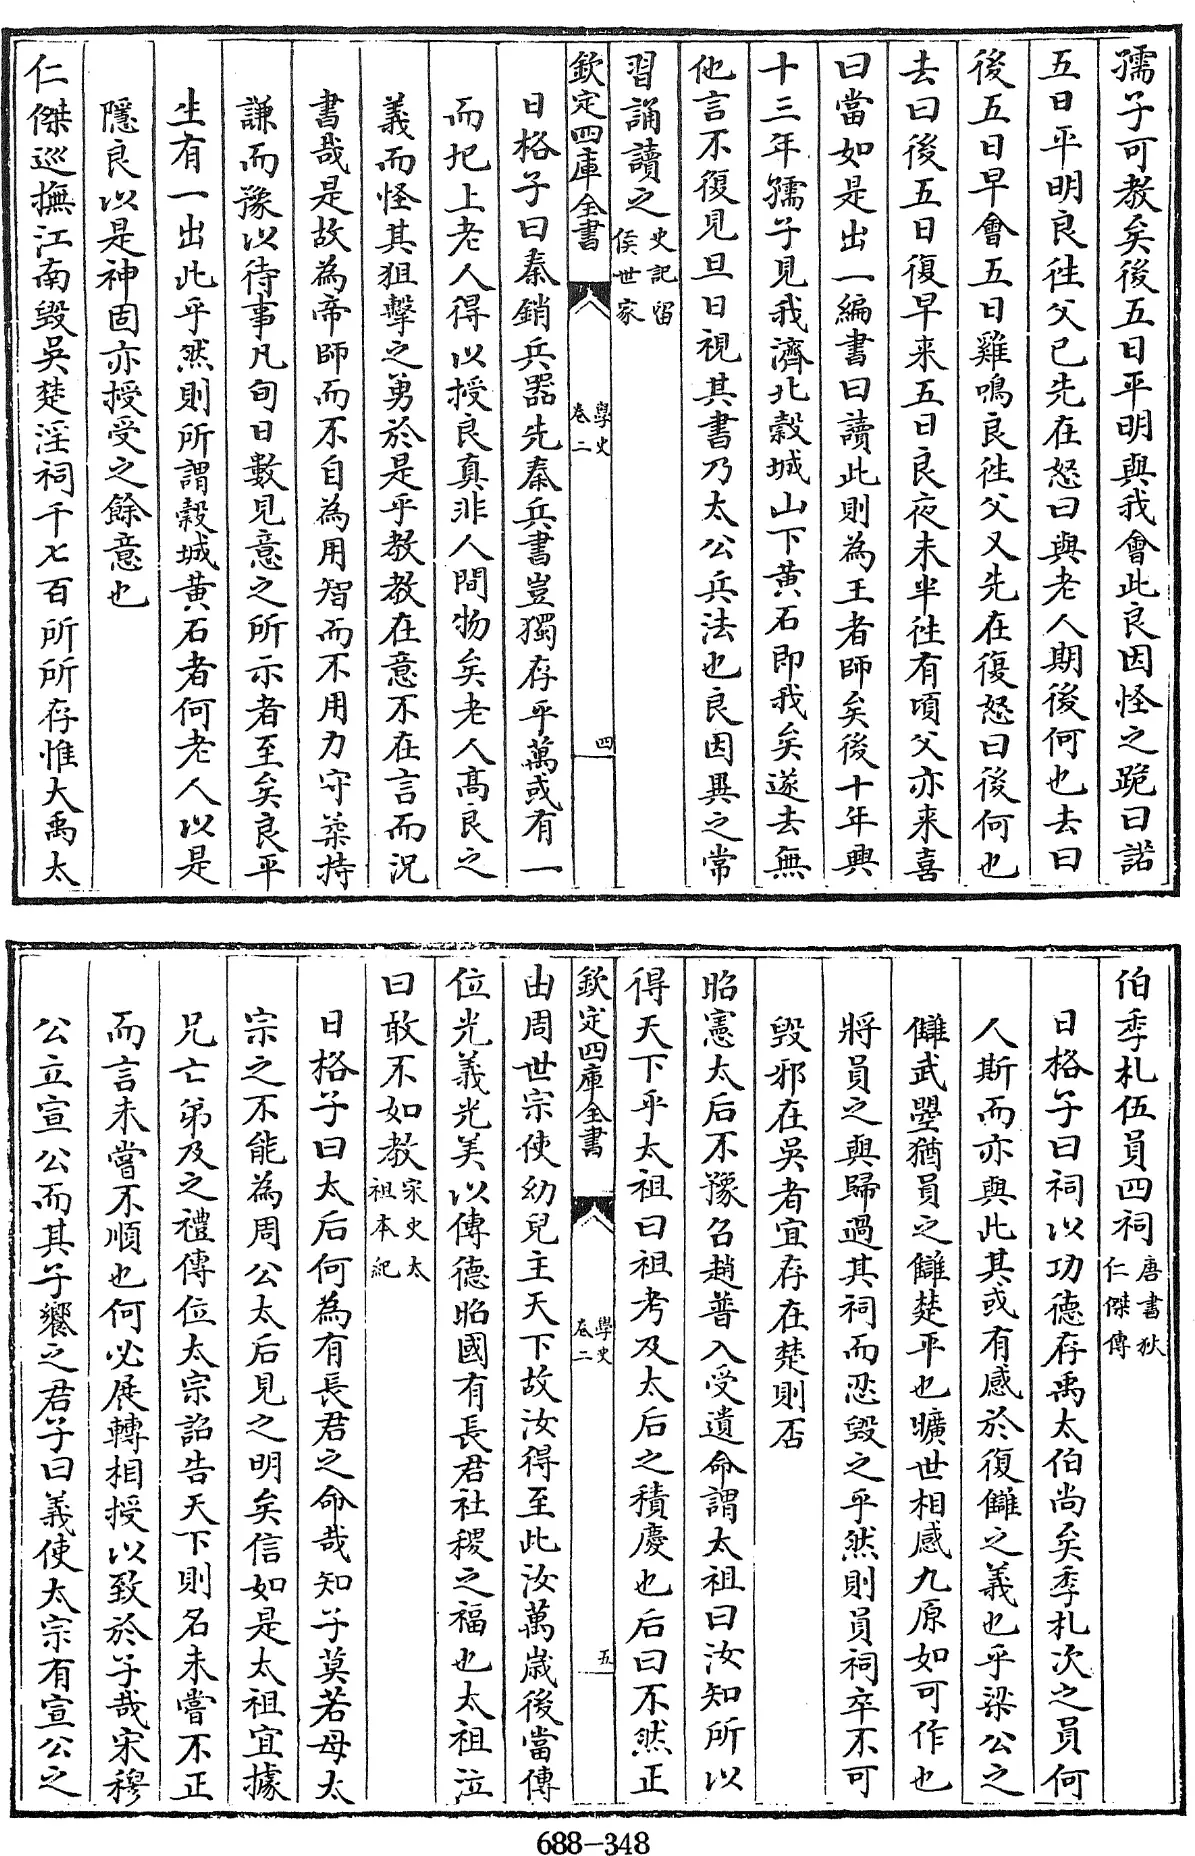 孺子可教矣後五日平明與我會此良因怪之跪曰諾
五日平明良徃父已先在怒曰與老人期後何也去曰
後五日早會五日雞鳴良徃父又先在復怒曰後何也
去曰後五日復早来五日良夜未半徃有頃父亦来喜
曰當如是出一編書曰讀此則為王者師矣後十年興
十三年孺子見我濟北穀城山下黄石即我矣遂去無
他言不復見旦日視其書乃太公兵法也良因異之常
習誦讀之史記留侯世家
欽定四庫全書
學史
卷二
四
日格子曰秦銷兵器先秦兵書豈獨存乎萬或有一
而圯上老人得以授良真非人間物矣老人髙良之
義而怪其狙擊之勇於是乎教教在意不在言而況
書哉是故為帝師而不自為用智而不用力守柔持
謙而豫以待事凡旬日數見意之所示者至矣良平
生有一出此乎然則所謂穀城黄石者何老人以是
隱良以是神固亦授受之餘意也
仁傑巡撫江南毁吳楚淫祠千七百所所存惟大禹太
伯季札伍員四祠唐書狄仁傑傳
日格子曰祠以功德存禹太伯尚矣季札次之員何
人斯而亦與此其或有感於復讎之義也乎梁公之
讎武曌猶員之讎楚平也曠世相感九原如可作也
將員之與歸過其祠而忍毁之乎然則員祠卒不可
毁邪在吳者宜存在楚則否
昭憲太后不豫召趙普入受遺命謂太祖曰汝知所以
得天下乎太祖曰祖考及太后之積慶也后曰不然正
欽定四庫全書
學史
卷二
五
由周世宗使幼兒主天下故汝得至此汝萬歳後當傳
位光義光美以傳德昭國有長君社稷之福也太祖泣
曰敢不如教宋史太祖本紀
日格子曰太后何為有長君之命哉知子莫若母太
宗之不能為周公太后見之明矣信如是太祖宜據
兄亡弟及之禮傳位太宗詔告天下則名未嘗不正
而言未嘗不順也何必展轉相授以致於子哉宋穆
公立宣公而其子饗之君子曰義使太宗有宣公之
688-348